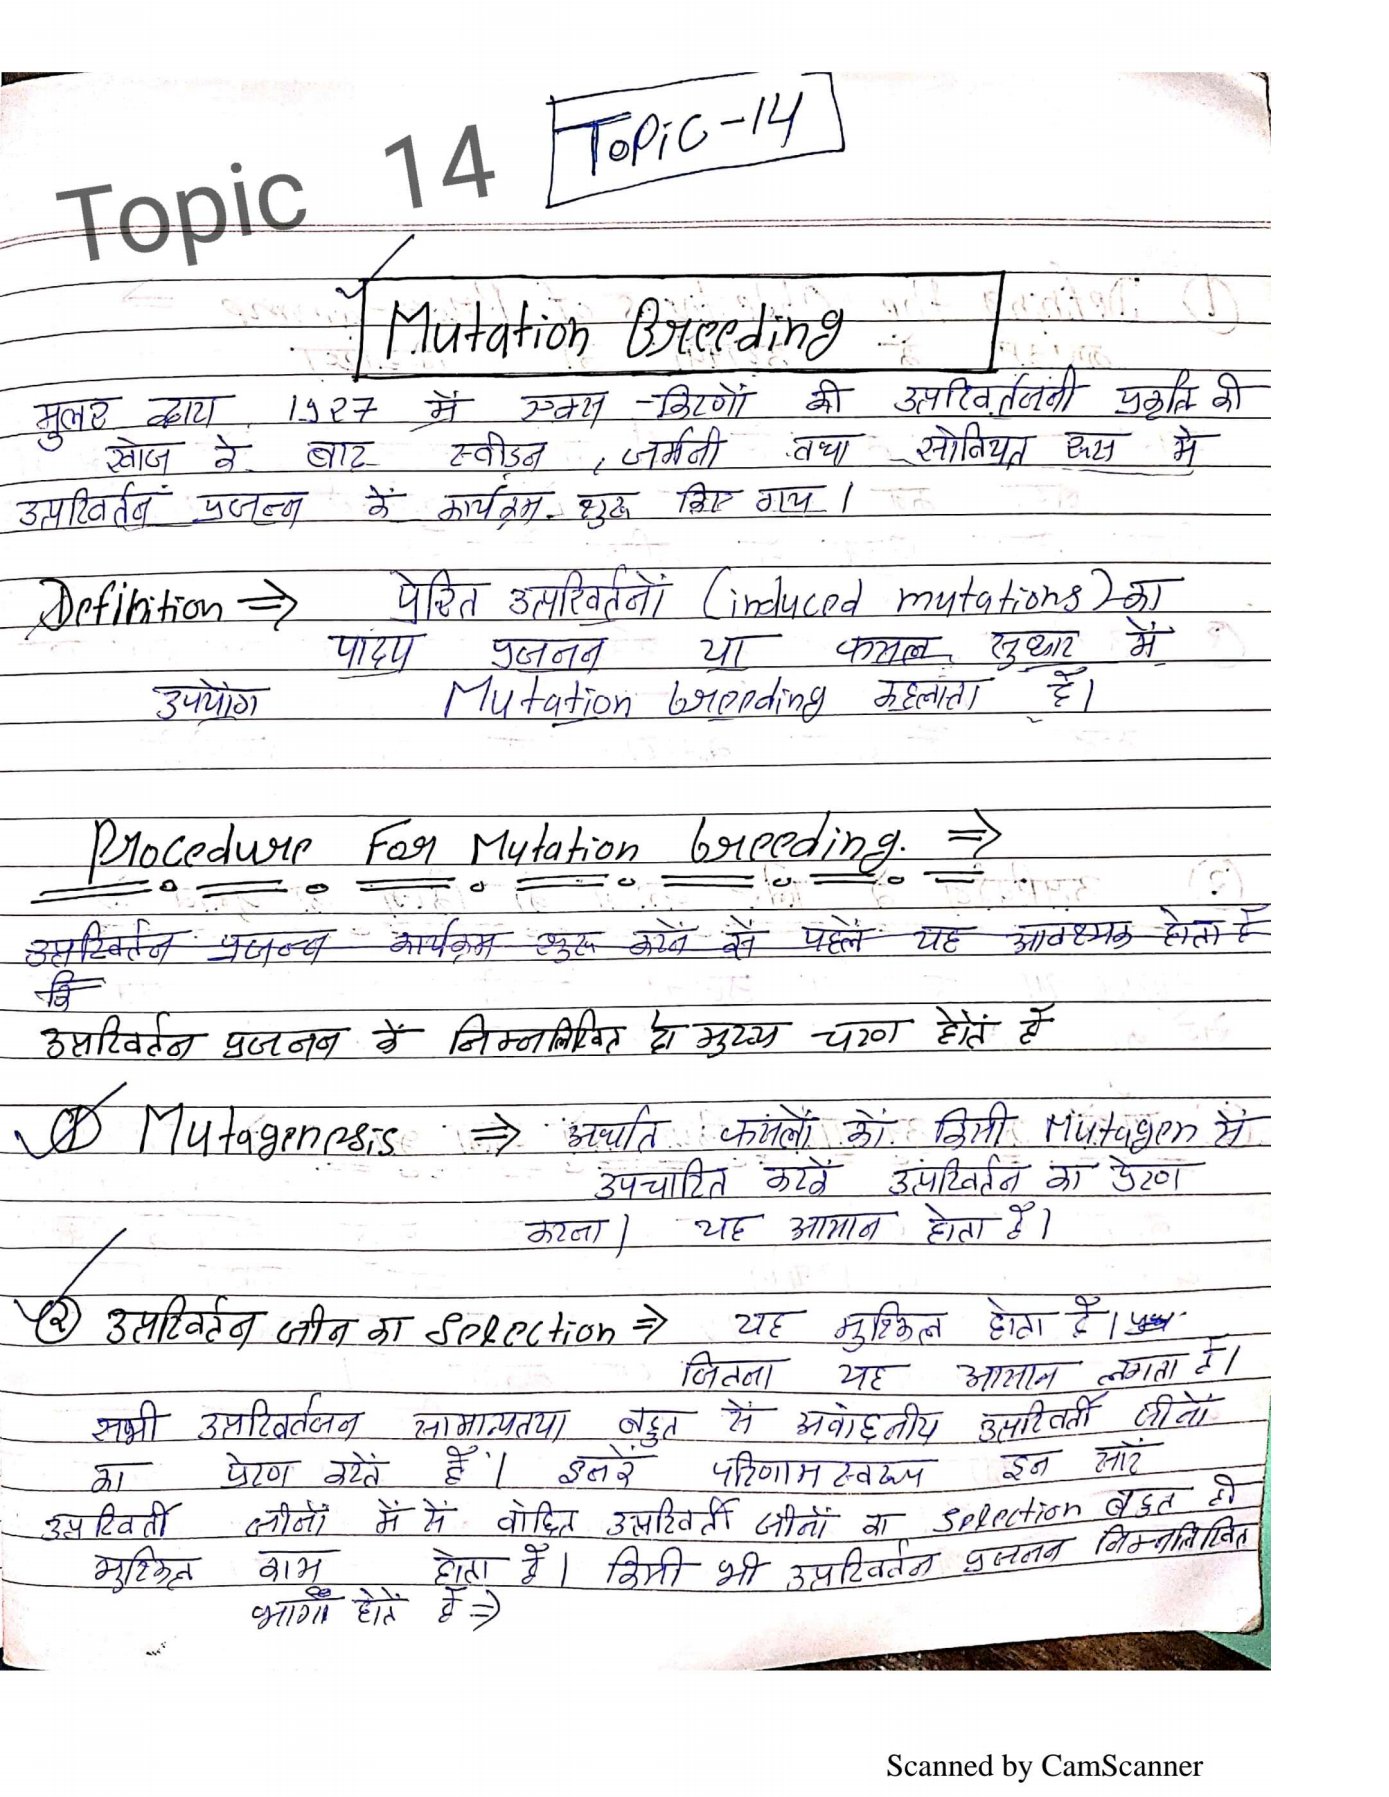 Topic 14
Topic-14
Mutation Breeding
मुलर द्वारा 1927 में एक्स-किरणों की उत्परिवर्तजनी प्रकृति की
खोज के बाद स्वीडन, जर्मनी तथा सोवियत रूस में
उत्परिवर्तन प्रजनन के कार्यक्रम शुरू किए गए।
Definition ⇒ प्रेरित उत्परिवर्तनों (induced mutations) का
पादप प्रजनन या फसल सुधार में
उपयोग Mutation breeding कहलाता है।
Procedure For Mutation breeding. ⇒
उत्परिवर्तन प्रजनन कार्यक्रम शुरू करने से पहले यह आवश्यक होता है
कि
उत्परिवर्तन प्रजनन के निम्नलिखित दो मुख्य चरण होते हैं
① Mutagenesis ⇒ अर्थात फसलों को किसी Mutagen से
उपचारित करके उत्परिवर्तन का प्रेरण
करना। यह आसान होता है।
② उत्परिवर्तन जीन का Selection ⇒ यह मुश्किल होता है।
जितना यह आसान लगता है।
सभी उत्परिवर्तजन सामान्यतया बहुत से अवांछनीय उत्परिवर्ती जीनों
का प्रेरण करते हैं। इनके परिणामस्वरूप इन सारे
उत्परिवर्ती जीनों में से वांछित उत्परिवर्ती जीनों का Selection बहुत ही
मुश्किल काम होता है। किसी भी उत्परिवर्तन प्रजनन निम्नलिखित
भाग होते हैं ⇒
Scanned by CamScanner